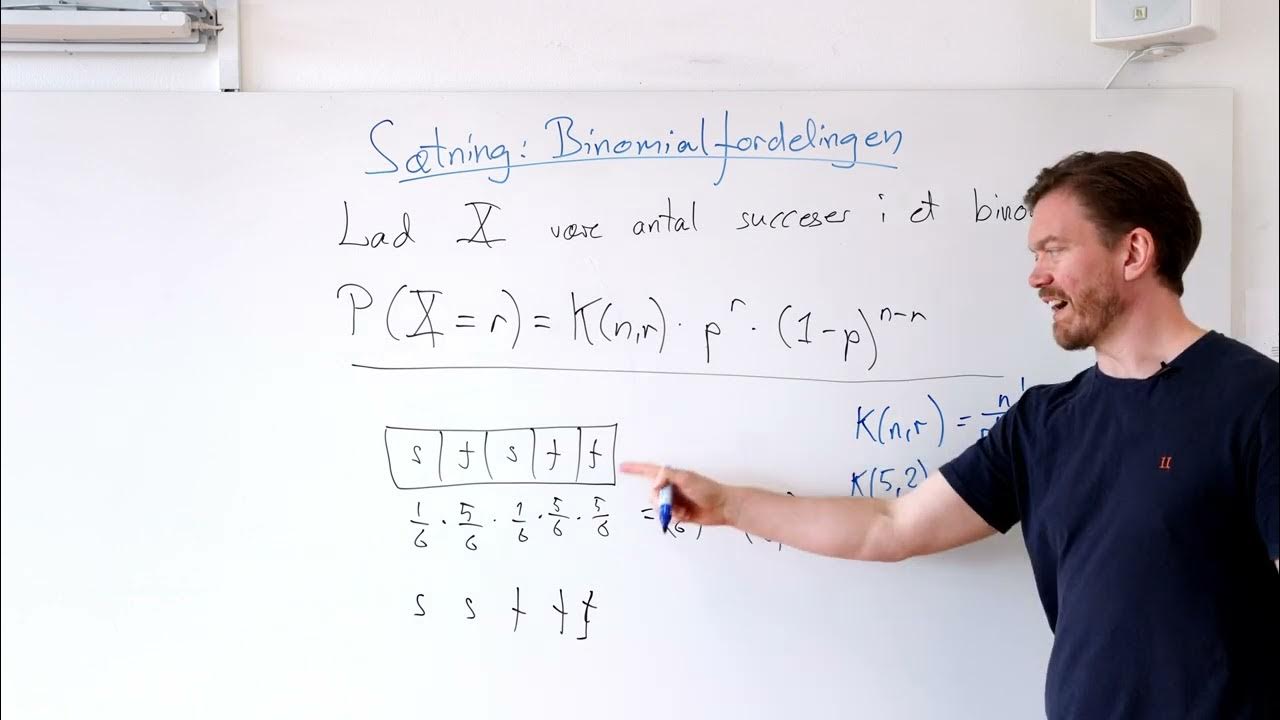 Sætning: Binomialfordelingen
Lad X være antal succeser i et bino
P(X=r) = K(n,r) · p^r · (1-p)^{n-r}
K(n,r) = n!
K(5,2)
s f s f f
1/6 · 5/6 · 1/6 · 5/6 · 5/6 =
s s f f f